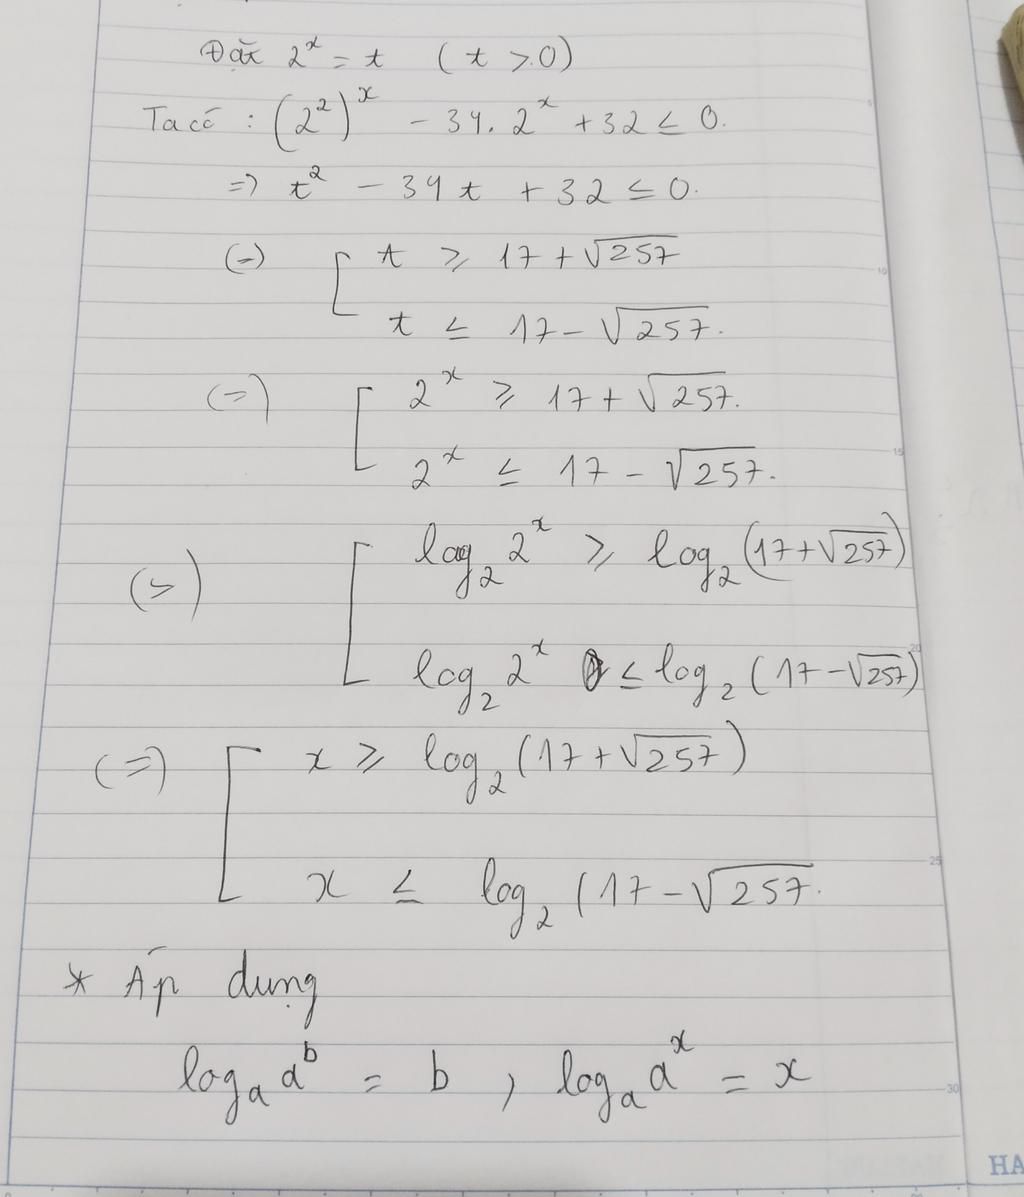 Đặt 2^x = t ( t > 0)
Ta có : (2^2)^x - 34. 2^x + 32 ≤ 0.
=> t^2 - 34 t + 32 ≤ 0.
(=) [ t ≥ 17 + √257
t ≤ 17 - √257.
(=) [ 2^x ≥ 17 + √257.
2^x ≤ 17 - √257.
(=) [ log_2 2^x ≥ log_2 (17 + √257)
log_2 2^x ≤ log_2 (17 - √257)
(=) [ x ≥ log_2 (17 + √257)
x ≤ log_2 (17 - √257.
* Áp dụng
log_a a^b = b , log_a a^x = x
HA